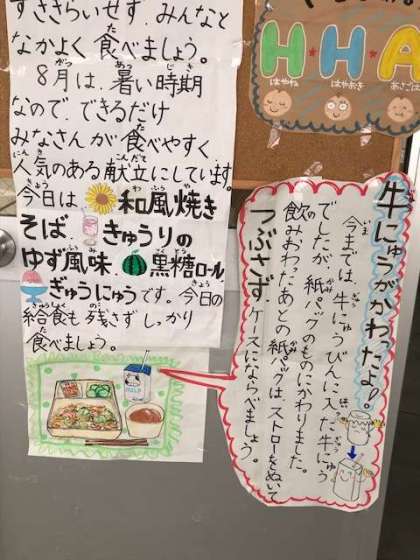 すききらいせず、みんなと
なかよく食べましょう。
8月は、暑い時期
なので、できるだけ
みなさんが食べやすく、
人気のある献立にしています。
今日は、和風焼き
そば、きゅうりの
ゆず風味、黒糖ロール
ぎゅうにゅうです。今日の
給食も残さずしっかり
食べましょう。
H・H・A
はやね
はやおき
あさごは
牛にゅうがかわったよ!
今までは、牛にゅうびんに入った牛にゅう
でしたが、紙パックのものにかわりました。
飲みおわったあとの紙パックは、ストローをぬいて
つぶさず、ケースにならべましょう。